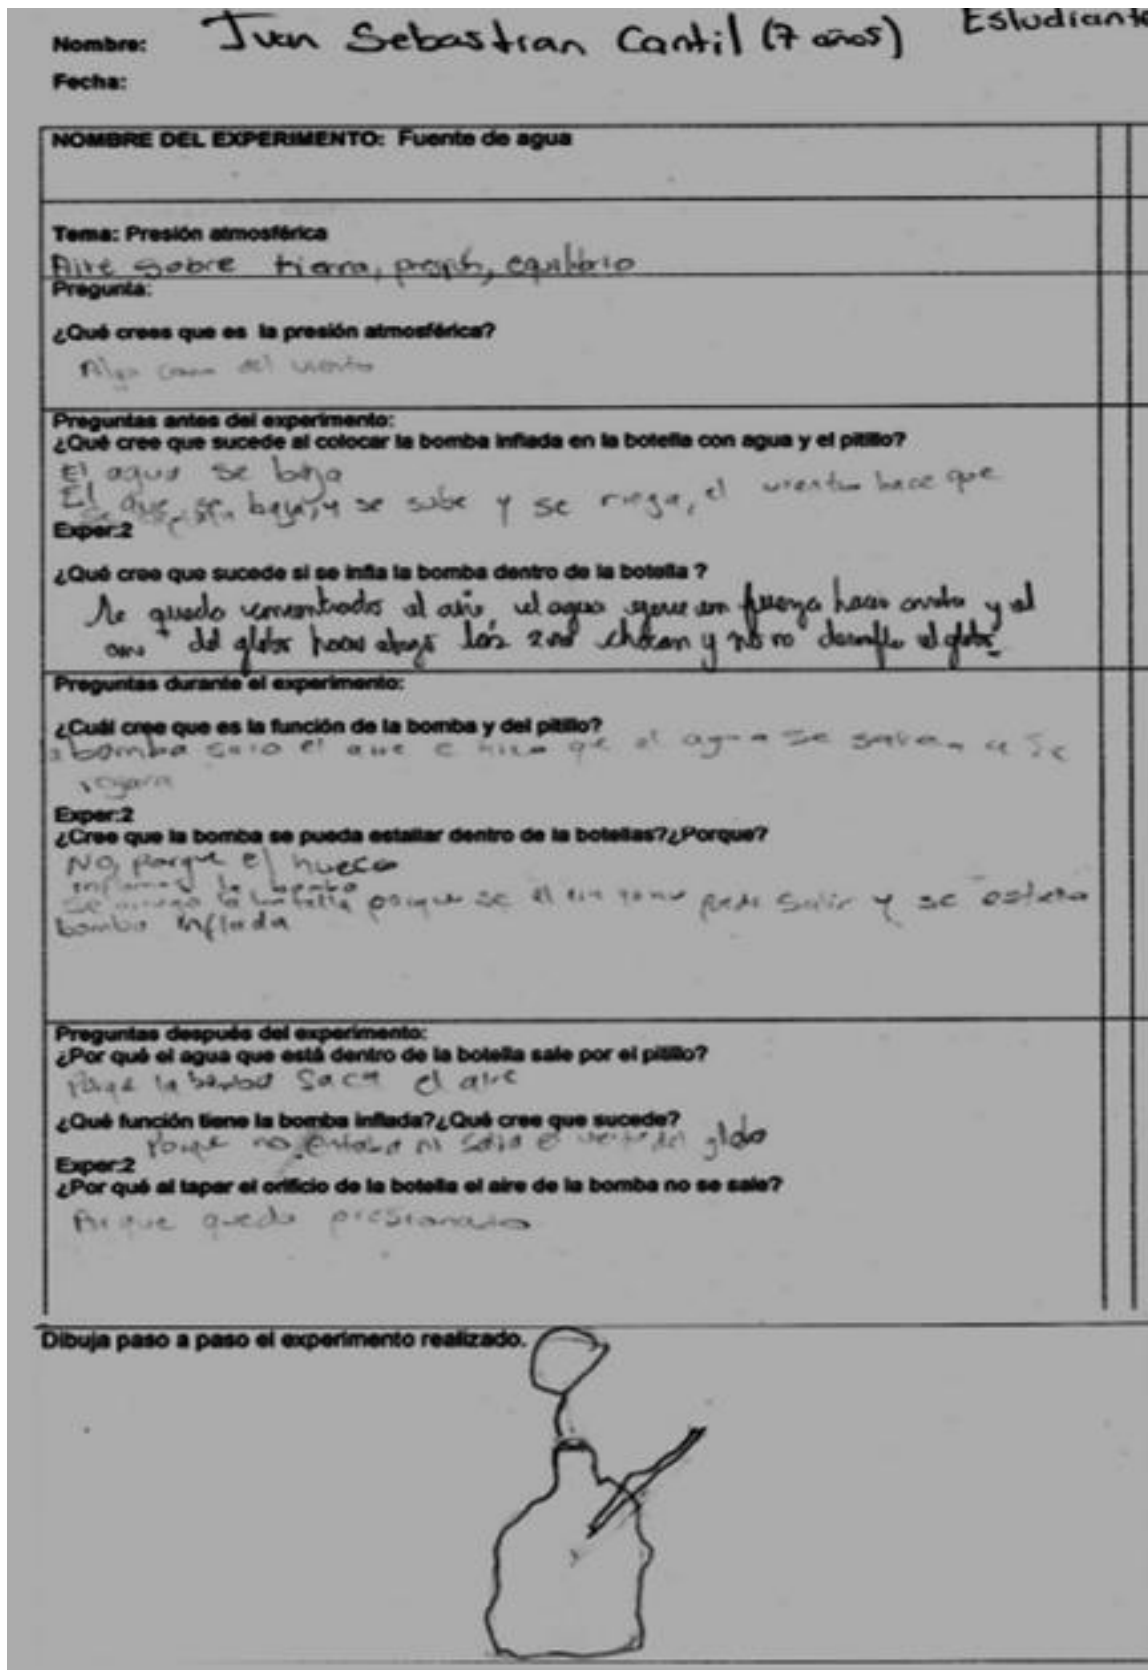 Nombre: Juan Sebastian Cantil (7 años) Estudiante
Fecha:
NOMBRE DEL EXPERIMENTO: Fuente de agua
Tema: Presión atmosférica
Aire sobre tierra, equilibrio
Pregunta:
¿Qué crees que es la presión atmosférica?
Algo como del viento
Preguntas antes del experimento:
¿Qué cree que sucede al colocar la bomba inflada en la botella con agua y el pitillo?
El agua se baja
El baja, y se sube y se riega, el viento hace que
Exper:2
¿Qué cree que sucede si se infla la bomba dentro de la botella ?
el agua fuerza hacia y el
del globo los 2 chocan y no el globo
Preguntas durante el experimento:
¿Cuál cree que es la función de la bomba y del pitillo?
bomba el aire e hizo que el agua se
Exper:2
¿Cree que la bomba se pueda estallar dentro de la botellas?¿Porque?
NO, porque el hueco
inflamos la bomba
la botella porque se el salir y se
bomba inflada
Preguntas después del experimento:
¿Por qué el agua que está dentro de la botella sale por el pitillo?
la bomba saca el aire
¿Qué función tiene la bomba inflada?¿Qué cree que sucede?
Porque no ni salia el del globo
Exper:2
¿Por qué al tapar el orificio de la botella el aire de la bomba no se sale?
queda presionado
Dibuja paso a paso el experimento realizado.